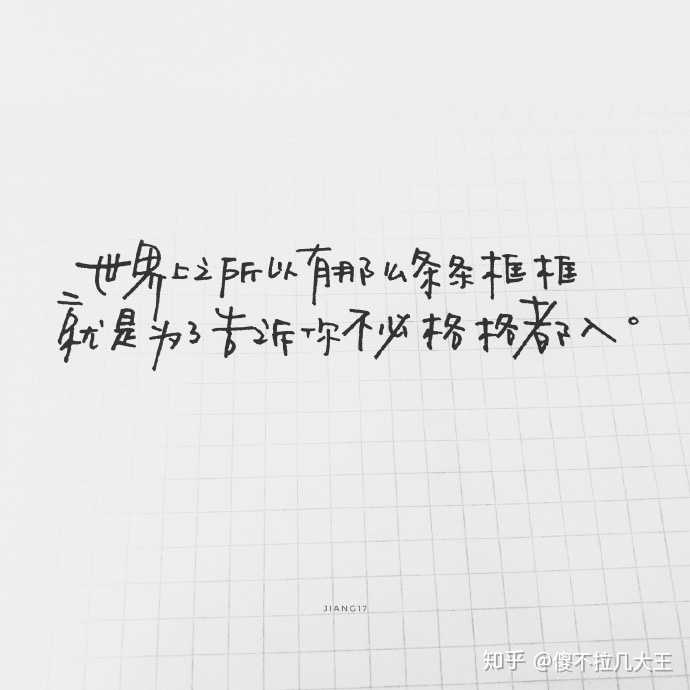 世界上之所以有那么条条框框
就是为了告诉你不必格格都入。
JIANG17
知乎 @傻不拉几大王